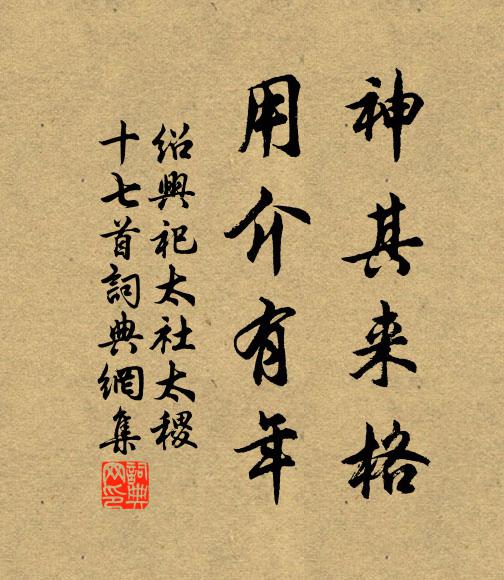 神其来格
用介有年
绍興祀太社太稷
十七首詞典網集
詞典
网印